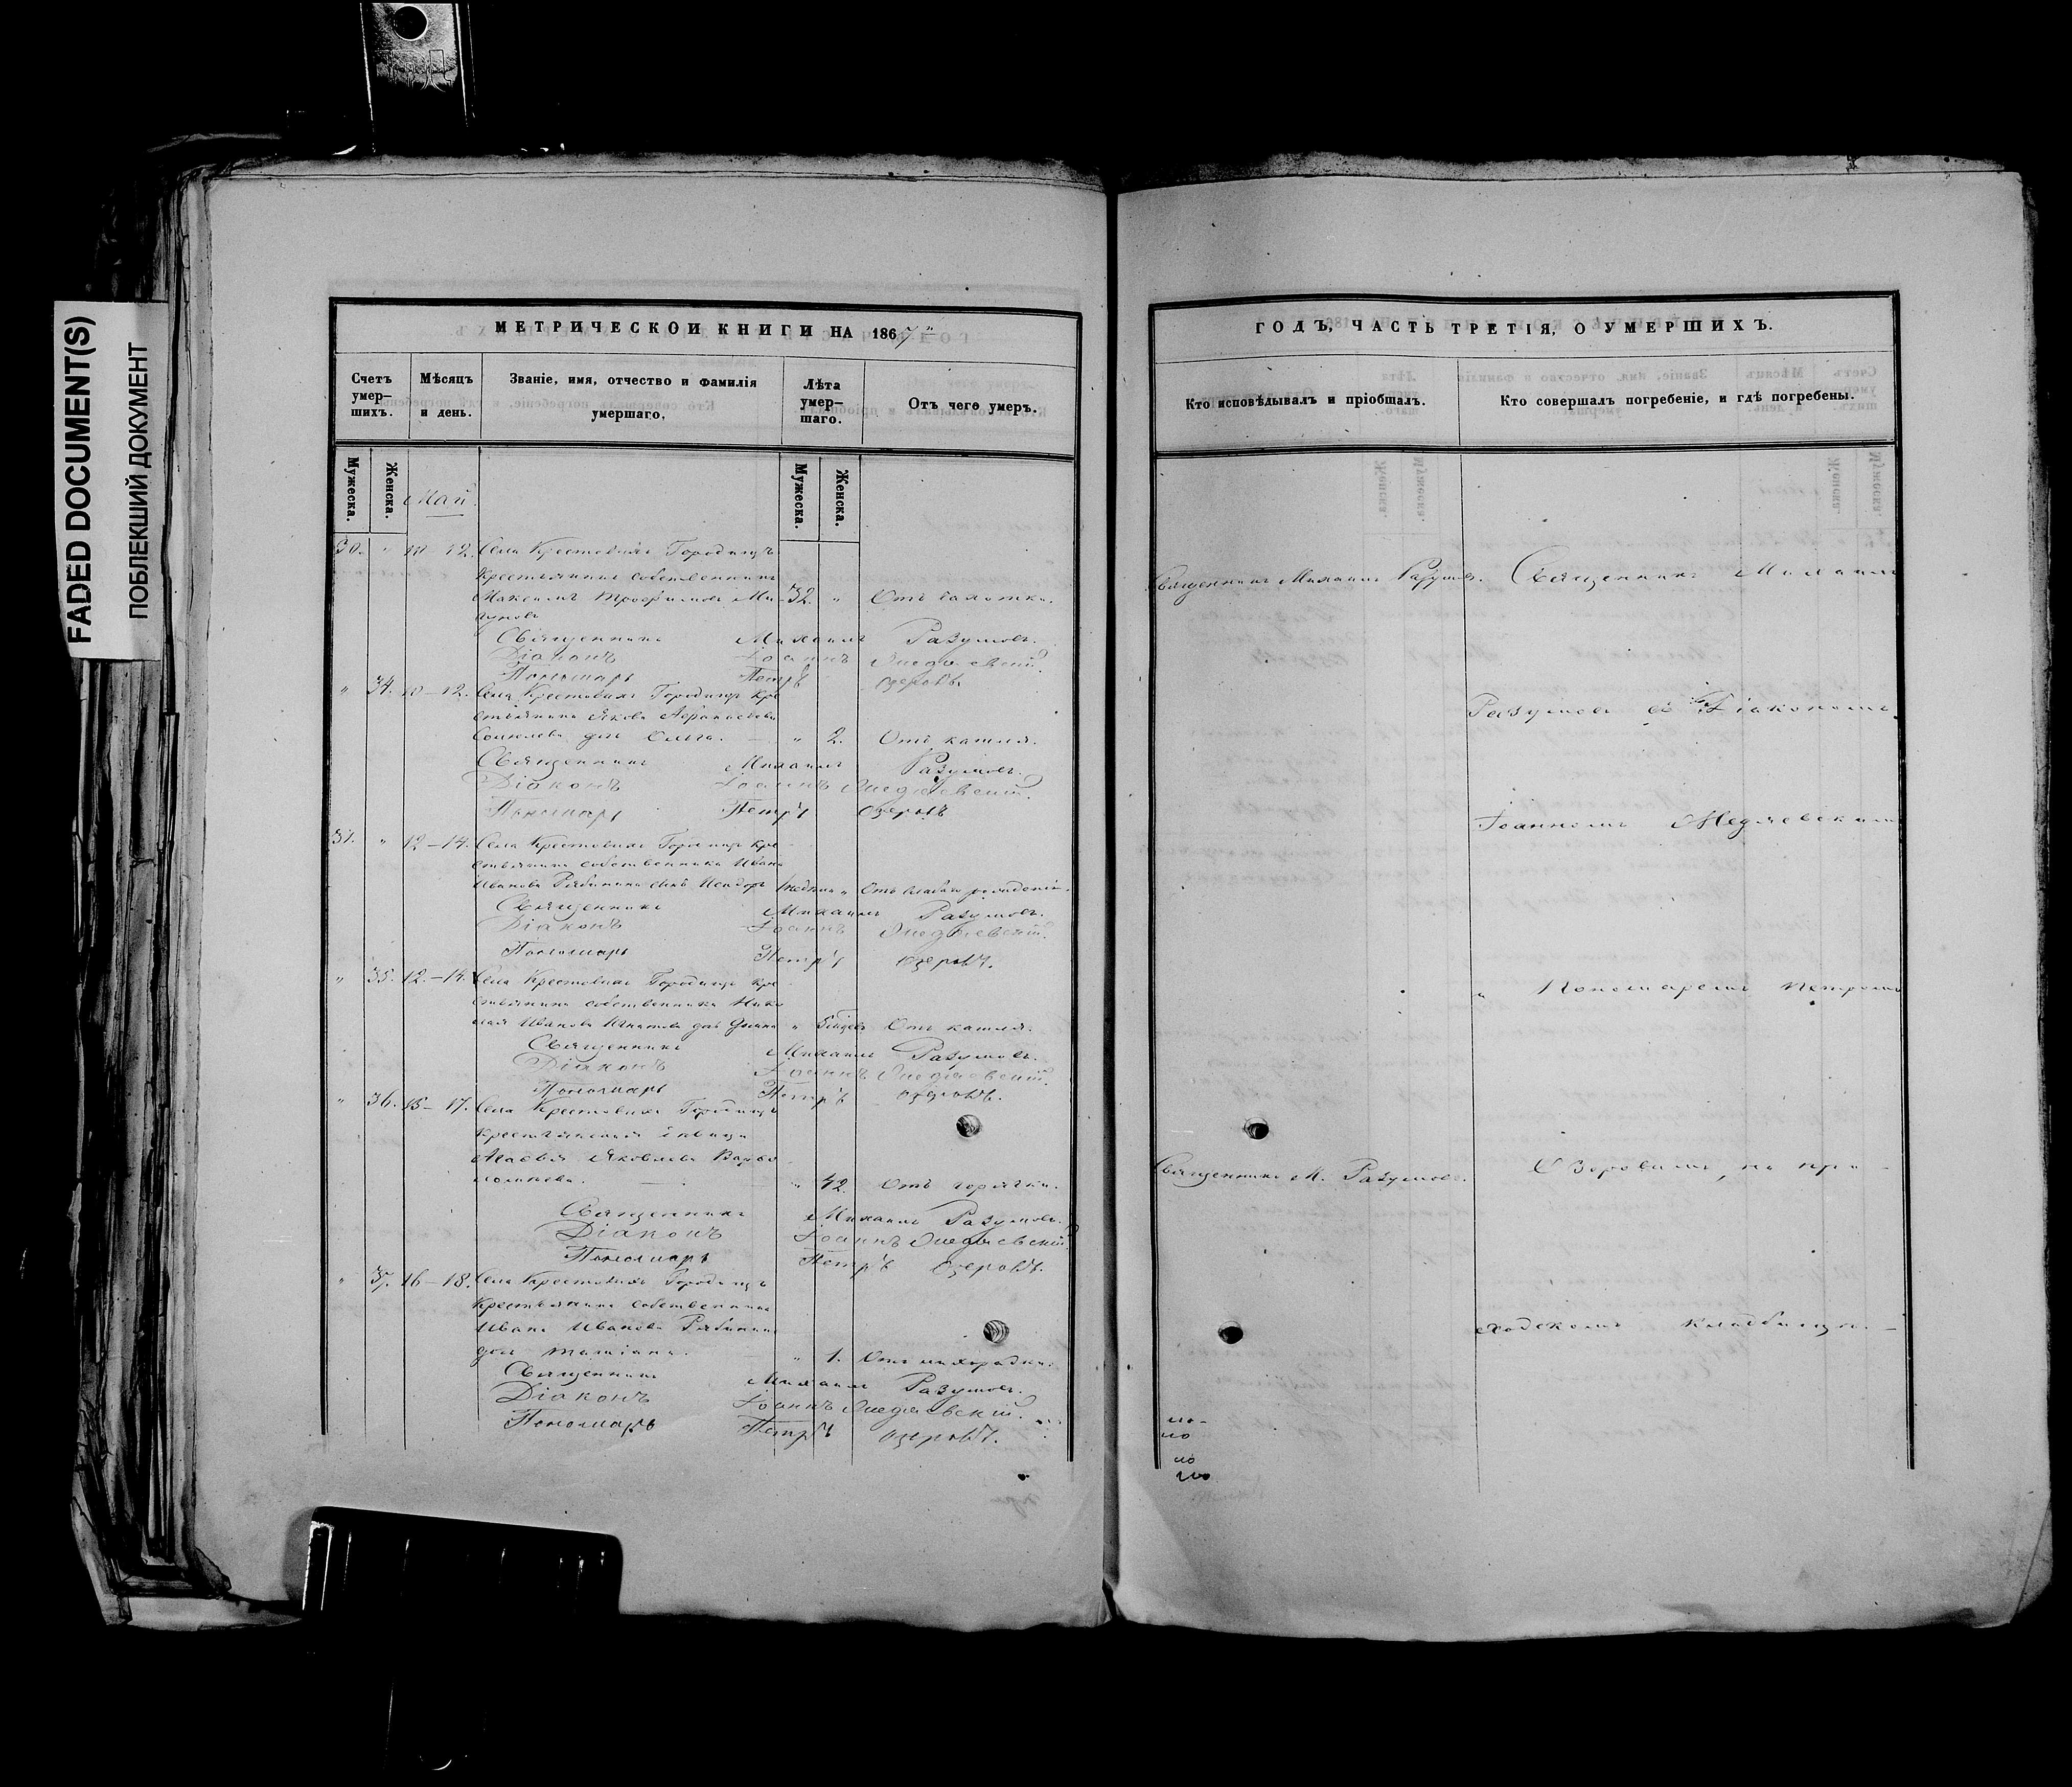 FADED DOCUMENT(S)
ПОБЛЕКШИЙ ДОКУМЕНТ
МЕТРИЧЕСКОЙ КНИГИ НА 1867
Счетъ умер-шихъ.
Мѣсяцъ и день.
Званіе, имя, отчество и фамилія умершаго.
Лѣта умер-шаго.
Отъ чего умеръ.
Мужеска.
Женска.
Мужеска.
Женска.
Май.
30. " 10 – 12. Села Крестовыхъ Городищъ
крестьянинъ собственникъ
Максимъ Трофимовъ 32. " Отъ чахотки.
Священникъ Михаилъ Разумовъ.
Діаконъ Іоаннъ Медяевскій.
Пономарь Петръ Озеровъ.
" 34. 10 – 12. Села Крестовыхъ Городищъ кре
стьянина Якова
дочь Ольга. " 2. Отъ кашля.
Священникъ Михаилъ Разумовъ.
Діаконъ Іоаннъ Медяевскій.
Пономарь Петръ Озеровъ
31. " 12 – 14. Села Крестовыхъ Городищъ кре
стьянина собственника Ивана
Иванова Рябинина сынъ "
Священникъ Михаилъ Разумовъ.
Діаконъ Іоаннъ Медяевскій.
Пономарь Петръ Озеровъ.
" 35. 12. – 14. Села Крестовыхъ Городищъ кре
стьянина собственника Нико
лая Иванова Игнатова дочь " Отъ кашля.
Священникъ Михаилъ Разумовъ.
Діаконъ Іоаннъ Медяевскій.
Пономарь Петръ Озеровъ.
" 36. 15 – 17. Села Крестовыхъ Городищъ
крестьянская дѣвица
Яковлева
" 42. Отъ горячки.
Священникъ Михаилъ Разумовъ.
Діаконъ Іоаннъ Медяевскій.
Пономарь Петръ Озеровъ.
" 37. 16 – 18. Села Крестовыхъ Городищъ
крестьянина собственника
Ивана Иванова Рябинина
дочь Татіана. " 1. Отъ лихорадки.
Священникъ Михаилъ Разумовъ.
Діаконъ Іоаннъ Медяевскій.
Пономарь Петръ Озеровъ.
ГОДЪ, ЧАСТЬ ТРЕТІЯ, О УМЕРШИХЪ.
Кто исповѣдывалъ и пріобщалъ.
Кто совершалъ погребеніе, и гдѣ погребены.
Священникъ Михаилъ Разумовъ. Священникъ Михаилъ
Разумовъ съ Діакономъ
Іоанномъ Медяевскимъ
и Пономаремъ Петромъ
Священникъ М. Разумовъ. Озеровымъ, на при-
ходскомъ кладбищѣ.